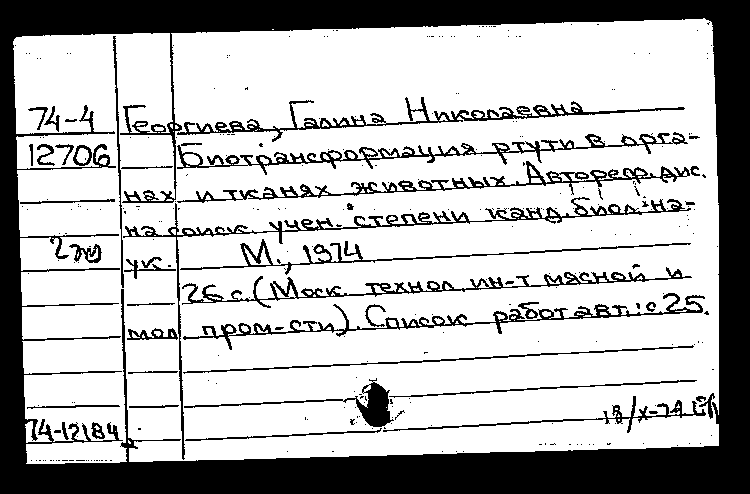 74-4 Георгиева, Галина Николаевна
12706 Биотрансформация ртути в орга-
нах и тканях животных. Автореф. дис.
на соиск. учен. степени канд. биол. на-
ук. М., 1974
26 с. (Моск. технол. ин-т мясной и
мол. пром-сти). Список работ авт.: с 25.
18/X-74
74-12184